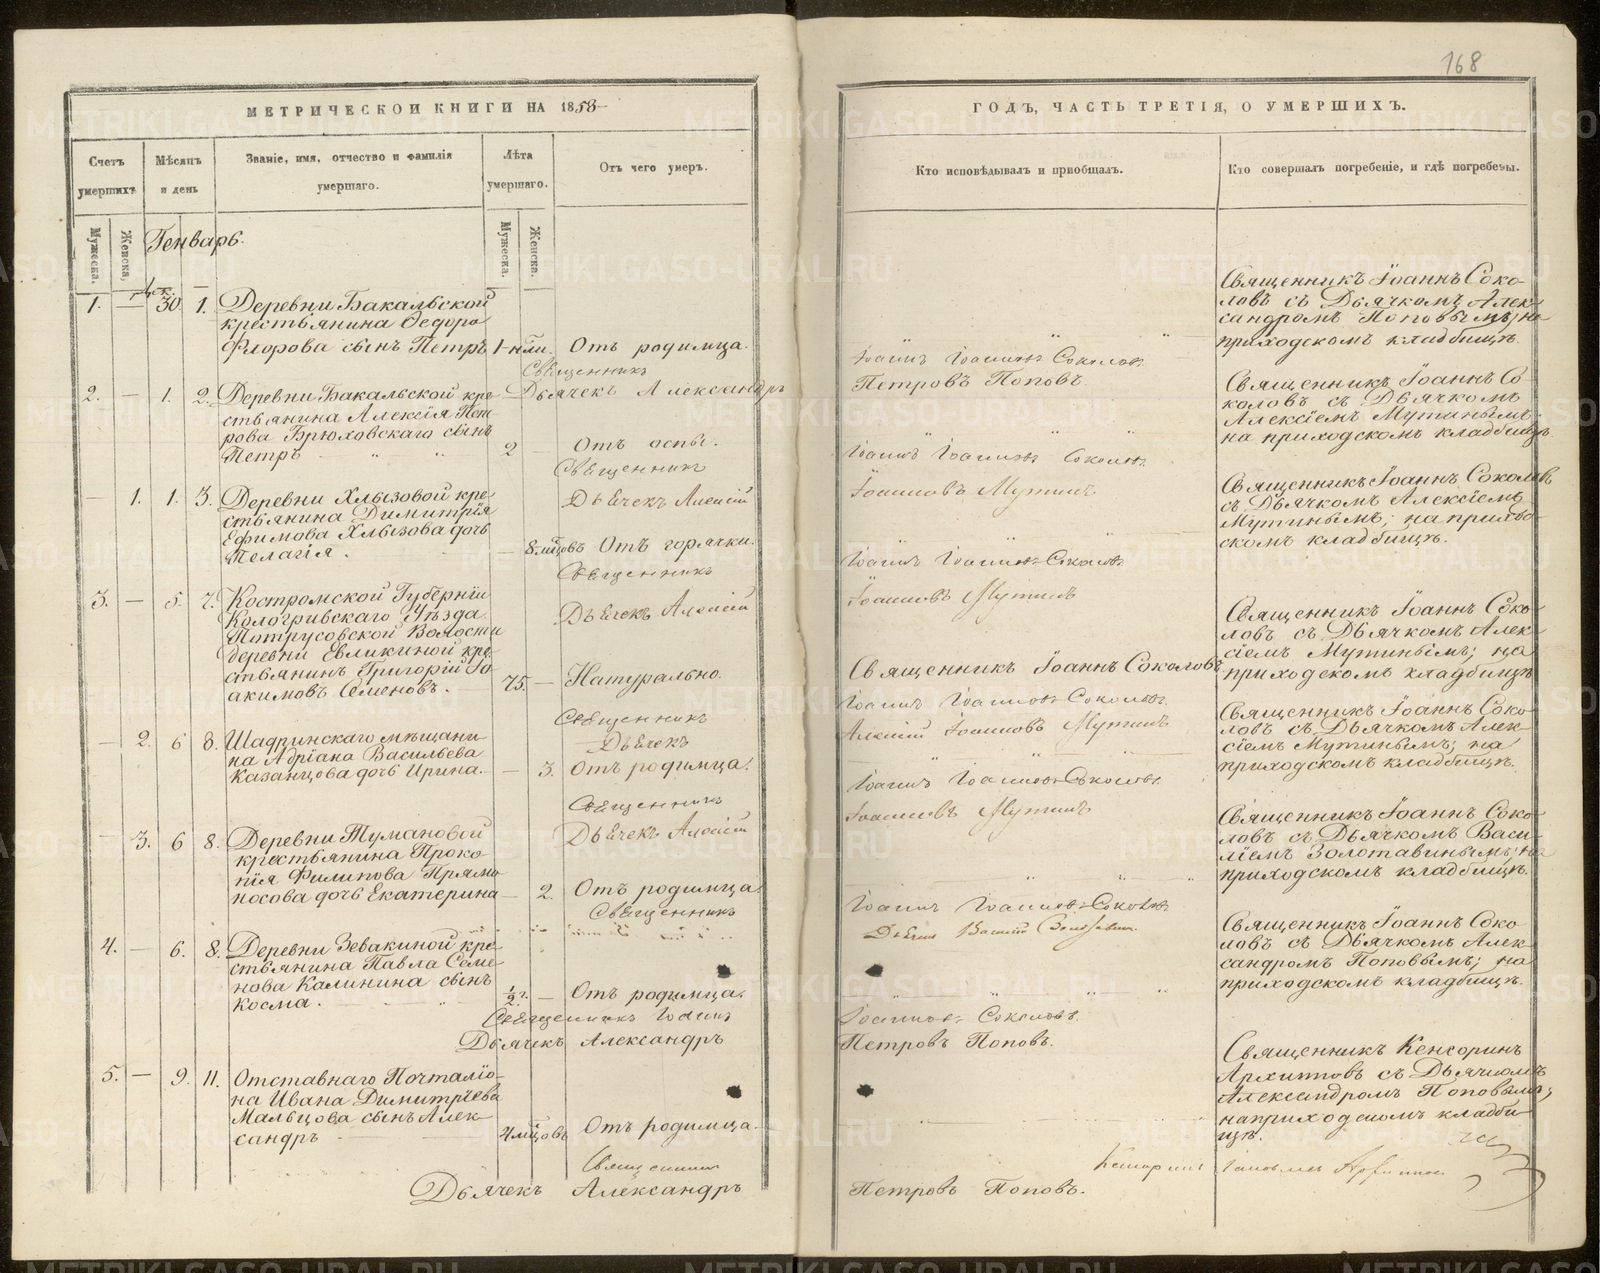 168
МЕТРИЧЕСКОЙ КНИГИ НА 1858
Счетъ умершихъ
Мѣсяцъ и день
Званіе, имя, отчество и фамилія умершаго.
Лѣта умершаго.
Отъ чего умеръ.
Мужеска.
Женска.
Мужеска.
Женска.
Генварь.
1. — 30. 1. Деревни Бакальской
крестьянина Ѳедора
Флорова сынъ Петръ 1 Отъ родимца.
Священникъ
Дьячекъ Александръ
2. — 1. 2. Деревни Бакальской кре-
стьянина Алексія Пет
рова Брюховскаго сынъ
Петръ 2 Отъ оспы.
Священникъ
— 1. 1. 3. Деревни Хлызовой кре-
стьянина Димитрія
Ефимова Хлызова дочь
Пелагія. — 8 мцовъ Отъ горячки.
Дьячекъ Алексій
Священникъ
3. — 5. 7. Костромской Губерніи
Кологривскаго Уѣзда
Потрусовской Волости
деревни Евликиной кре
стьянинъ Григорій Іо
акимовъ Семеновъ. 75. — Натурально.
Дьячекъ Алексій
Священникъ
Дьячекъ
— 2. 6 8. Шадринскаго мѣщани-
на Адріана Васильева
Казанцова дочь Ирина. — 3. Отъ родимца.
Священникъ
Дьячекъ Алексій
— 3. 6 8. Деревни Тумановой
крестьянина Проко
пія Филипова Прямо
носова дочь Екатерина — 2. Отъ родимца.
Священникъ
4. — 6. 8. Деревни Зевакиной кре-
стьянина Павла Семе
нова Калинина сынъ
Косма. 1/2 г. — Отъ родимца.
Священникъ Іоаннъ
Дьячекъ Александръ
5. — 9. 11. Отставнаго Почталіо-
на Ивана Димитріева
Мальцова сынъ Алек-
сандръ 4 мцовъ Отъ родимца.
Священникъ
Дьячекъ Александръ
ГОДЪ, ЧАСТЬ ТРЕТІЯ, О УМЕРШИХЪ.
Кто исповѣдывалъ и пріобщалъ.
Кто совершалъ погребеніе, и гдѣ погребены.
Священникъ Іоаннъ Соко-
ловъ съ Дьячкомъ Алек-
сандромъ Поповымъ; на
приходскомъ кладбищѣ.
Іоаннъ Іоанновъ Соколовъ
Петровъ Поповъ.
Священникъ Іоаннъ Со
коловъ съ Дьячкомъ
Алексіемъ Мутинымъ;
на приходскомъ кладбищѣ.
Іоаннъ Іоанновъ Соколовъ
Іоанновъ Мутинъ
Священникъ Іоаннъ Соколовъ
съ Дьячкомъ Алексіемъ
Мутинымъ; на приход-
скомъ кладбищѣ.
Іоаннъ Іоанновъ Соколовъ
Іоанновъ Мутинъ
Священникъ Іоаннъ Соко-
ловъ съ Дьячкомъ Алек-
сіемъ Мутинымъ; на
приходскомъ кладбищѣ
Священникъ Іоаннъ Соколовъ
Іоаннъ Іоанновъ Соколовъ.
Алексій Іоанновъ Мутинъ
Священникъ Іоаннъ Соко-
ловъ съ Дьячкомъ Алек-
сіемъ Мутинымъ; на
приходскомъ кладбищѣ.
Іоаннъ Іоанновъ Соколовъ.
Іоанновъ Мутинъ
Священникъ Іоаннъ Соко-
ловъ съ Дьячкомъ Васи-
ліемъ Золотавинымъ; на
приходскомъ кладбищѣ.
Іоаннъ Іоанновъ Соколовъ
Дьячекъ Василій Золотавинъ.
Священникъ Іоаннъ Соко
ловъ съ Дьячкомъ Алек-
сандромъ Поповымъ; на
приходскомъ кладбищѣ.
Іоанновъ Соколовъ.
Петровъ Поповъ.
Священникъ Кенсоринъ
Архиповъ съ Дьячкомъ
Александромъ Поповымъ;
на приходскомъ кладби
щѣ.
Кенсоринъ
Петровъ Поповъ.
METRIKI.GASO-URAL.RU